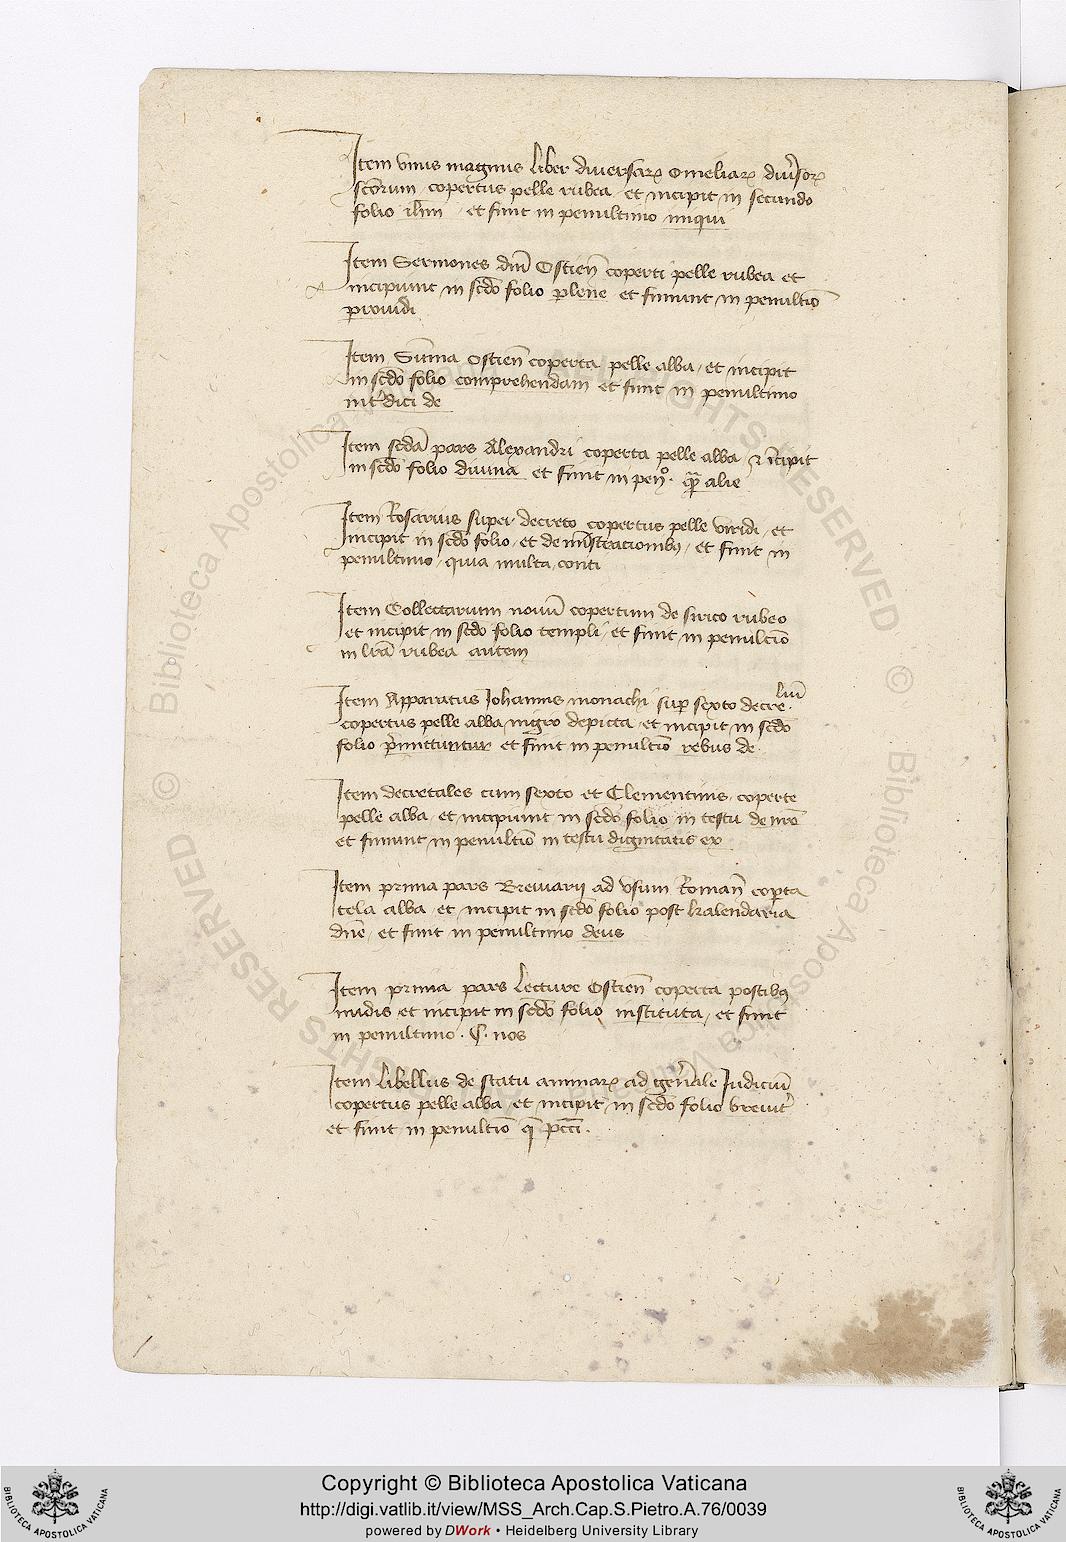 Item unus magnus liber diversarꝝ omeliarꝝ div̓sorꝝ
sc̄orum copertus pelle rubea et incipit in secundo
folio ih̄m et finit in penultimo iniqui
Item Sermones dn̄i Ostien̄ coperti pelle rubea et
incipiunt in sc̄do folio plene et finiunt in penultīo
providi
Item Sūma Ostien̄ coperta pelle alba et incipit
in sc̄do folio comprehendam et finit in penultimo
int̓dici de
Item sc̄da pars Alexandri coperta pelle alba ⁊ īcipit
in sc̄do folio divina et finit in pen°. alie
Item Rosarius super decreto copertus pelle viridi et
incipit in sc̄do folio et de et finit in
penultimo quia multa conti
Item Collectarium novū copertum de sirico rubeo
et incipit in sc̄do folio templi et finit in penultīo
in lr̄a rubea autem
Item Apparatus Johannis monachi suꝑ sexto decre.liū
copertus pelle alba nigro depicta et incipit in sc̄do
folio et finit in penultīo rebus de
Item decretales cum sexto et Clementinis coperte
pelle alba et incipiunt in sc̄do folio in testu de iure
et finiunt in penultīo in testu dignitatis ex
Item prima pars Breviarij ad usum Roman̄ coꝑta
tela alba et incipit in sc̄do folio post kalendaria
dn̄e et finit in penultimo deus
Item prima pars lecture Ostien̄ coperta postibꝫ
nudis et incipit in sc̄do folio instituta et finit
in penultimo. C. nos
Item libellus de statu animarꝝ ad gen̓ale Judiciū
copertus pelle alba et incipit in sc̄do folio brevit̓
et finit in penultīo q̄ pc̄c̄i.
© Biblioteca Apostolica Vaticana ALL RIGHTS RESERVED
© Biblioteca Apostolica Vaticana ALL RIGHTS RESERVED
Copyright © Biblioteca Apostolica Vaticana
http://digi.vatlib.it/view/MSS_Arch.Cap.S.Pietro.A.76/0039
powered by DWork • Heidelberg University Library
BIBLIOTECA APOSTOLICA VATICANA
BIBLIOTECA APOSTOLICA VATICANA